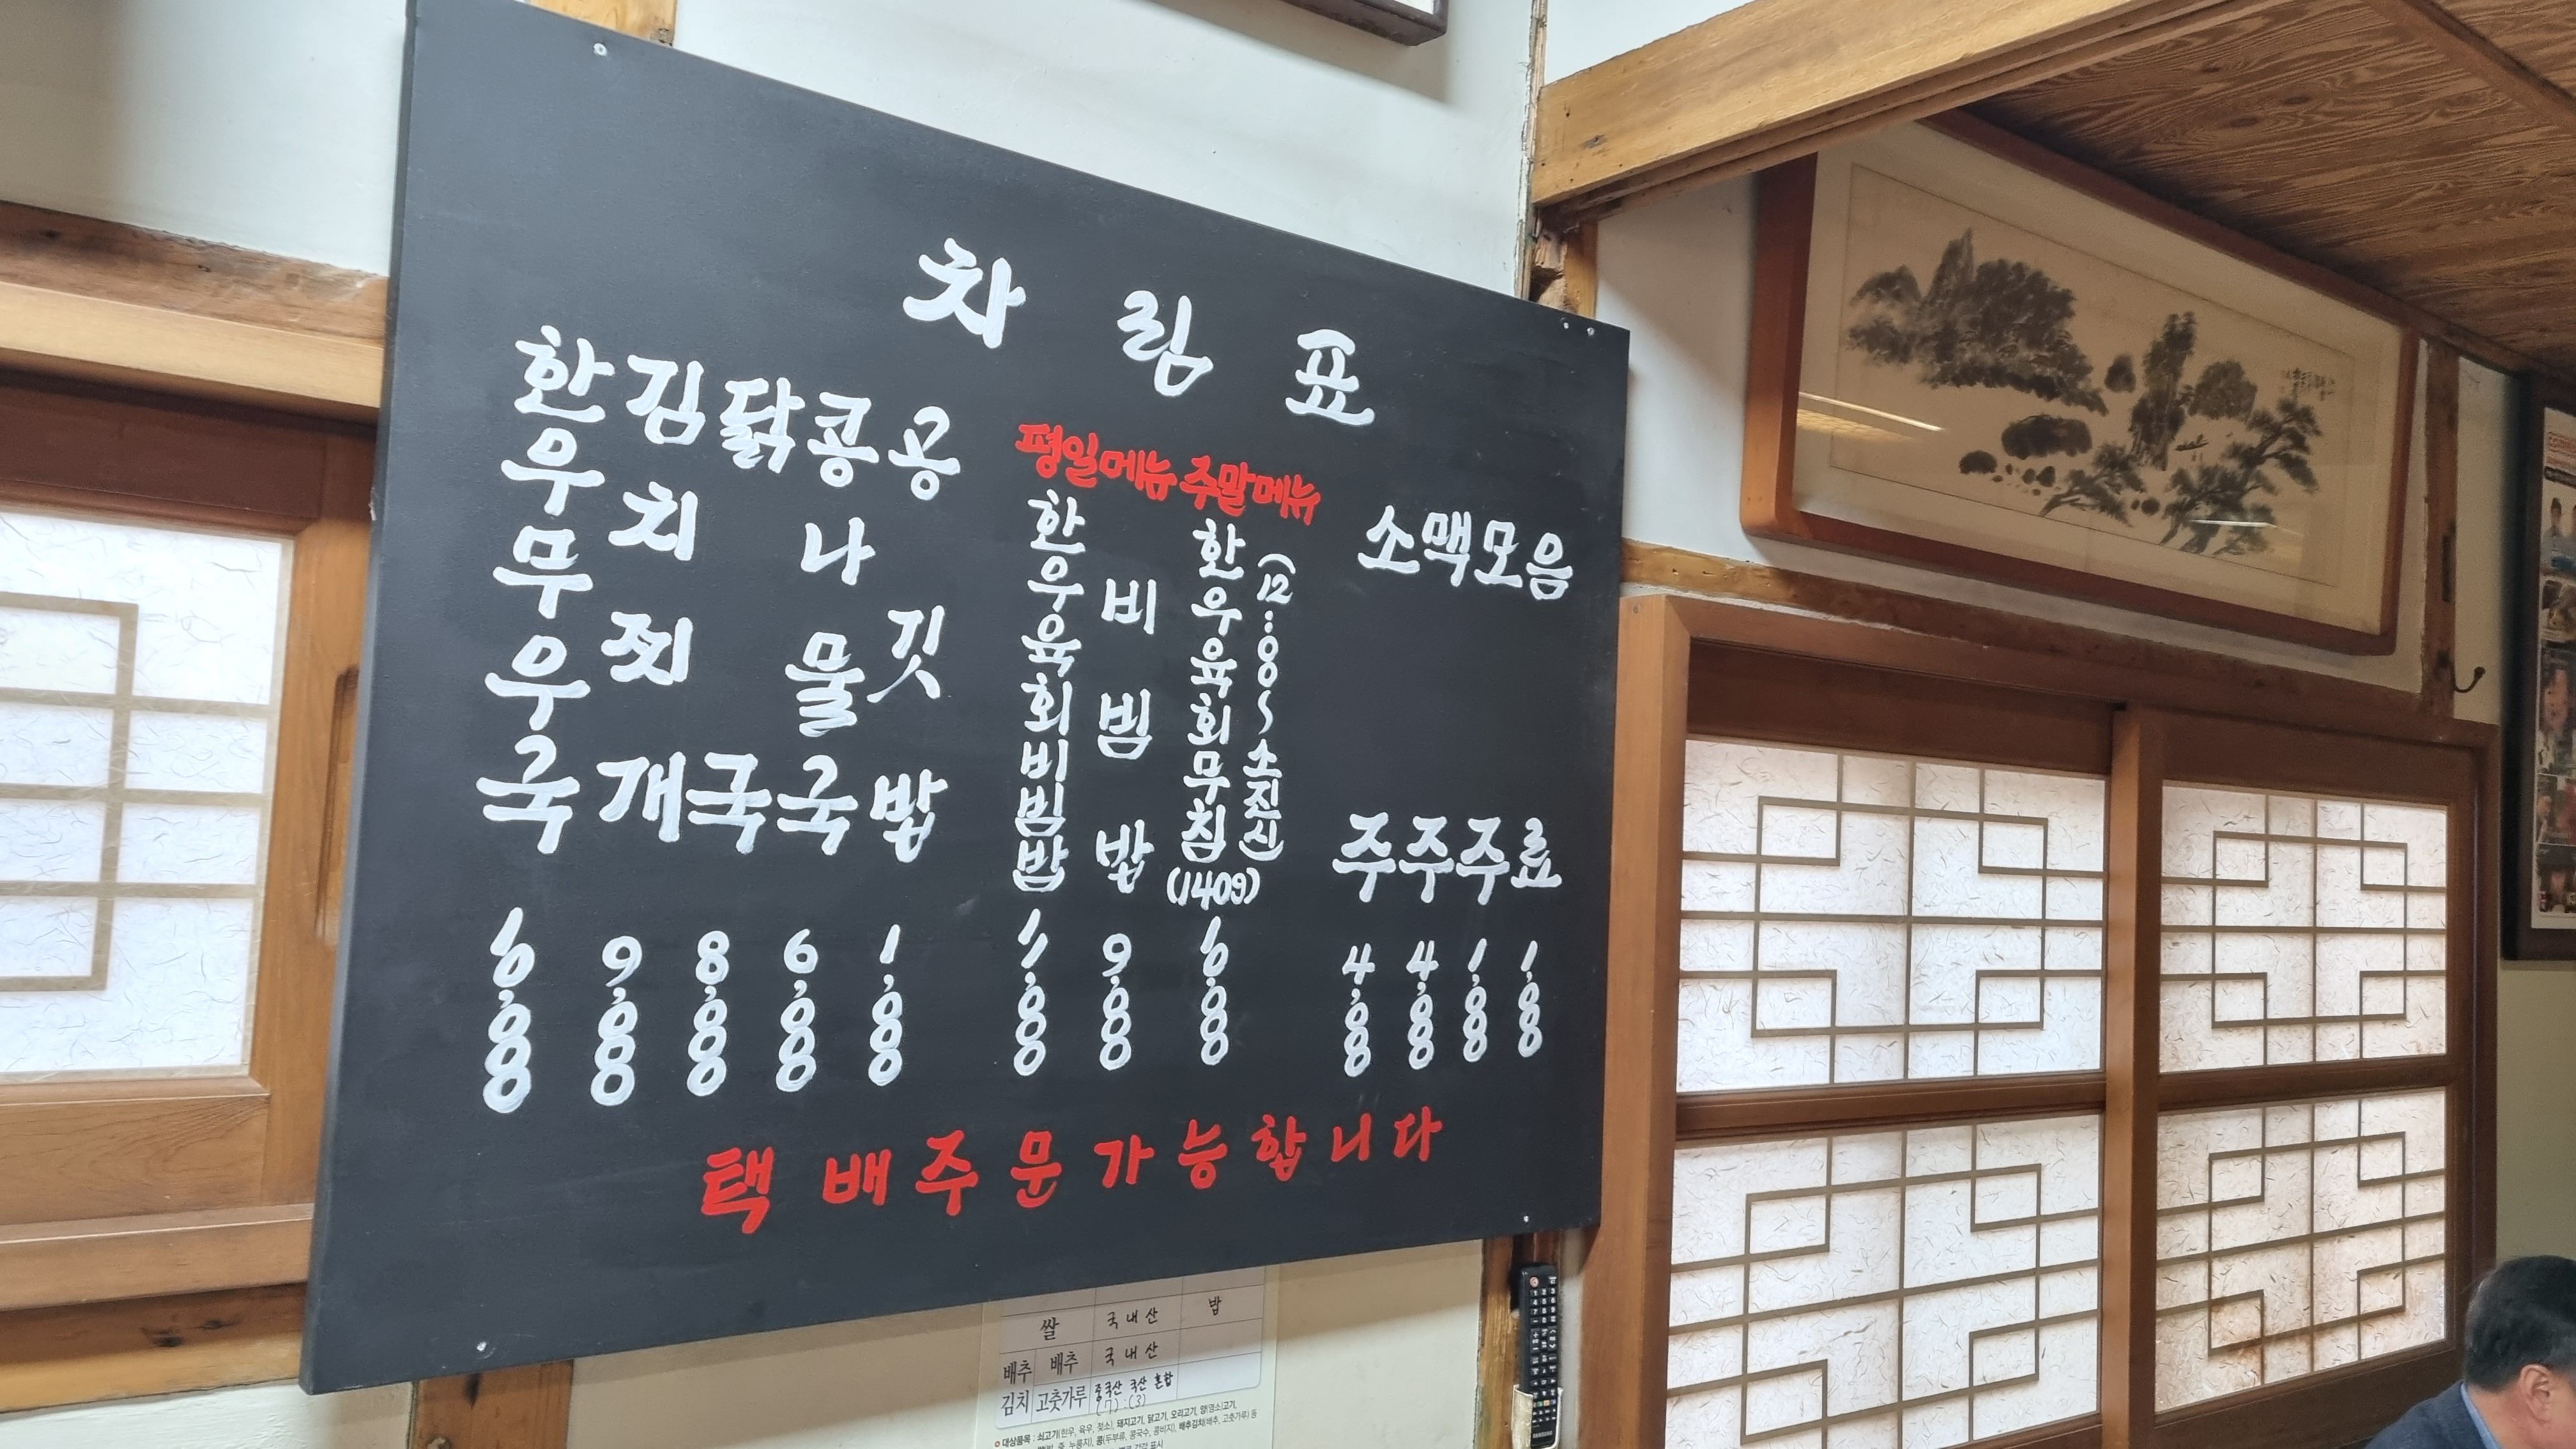 차림표
한우무우국 10,000
김치찌개 9,000
닭국 8,000
콩나물국 6,000
공깃밥 1,000
평일메뉴
한우육회비빔밥 11,000
비빔밥 9,000
주말메뉴
한우육회무침(140g) 10,000
(12:00~소진시)
소주 4,000
맥주 4,000
모주 1,000
음료 1,000
택배주문가능합니다
쌀 국내산 밥
배추 배추 국내산
김치 고춧가루 중국산 국산 혼합
(7):(3)
대상품목 : 쇠고기(한우, 육우, 젖소), 돼지고기, 닭고기, 오리고기, 양(염소)고기,
죽, 누룽지), 콩(두부류, 콩국수, 콩비지), 배추김치(배추, 고춧가루) 등